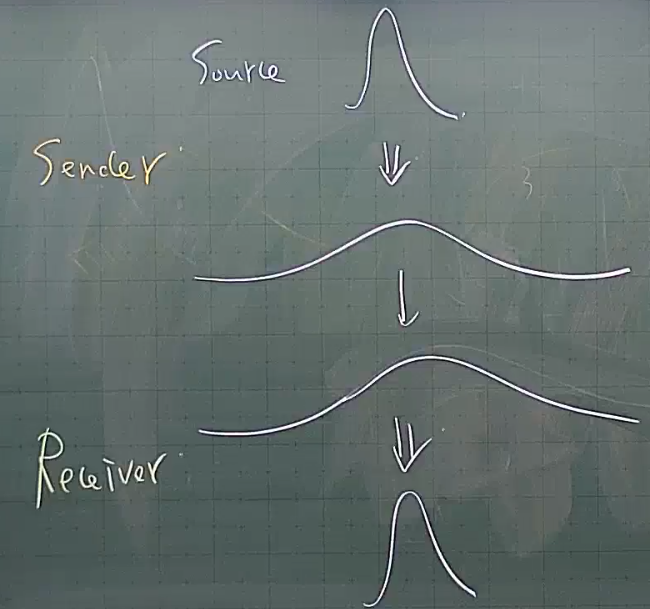 Source
Sender
Receiver